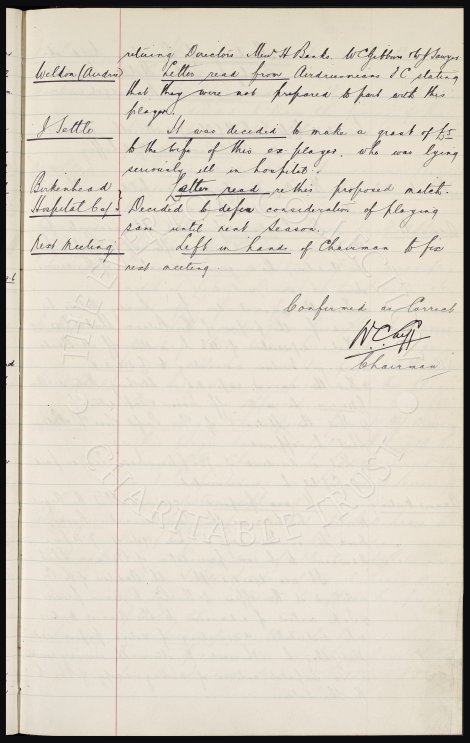 retiring Directors Messrs H Banks. W C Gibbins & W J Sawyer
Weldon (Airdrie) Letter read from Airdrieonians F C stating
that they were not prepared to part with this
player.
J Settle It was decided to make a grant of £5
to the wife of this ex player, who was lying
seriously ill in hospital.
Birkenhead Letter read re this proposed match.
Hospital Cup Decided to defer consideration of playing
same until next season.
Next Meeting Left in hands of Chairman to fix
next meeting.
Confirmed as Correct
W.C. Cuff
Chairman
CHARITABLE TRUST